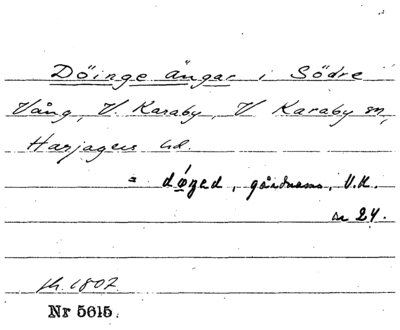 Döinge ängar i Södre
Vång, V. Karaby, V Karaby sn,
Harjagers hd.
= döŋəd, gårdnamn, V.K.
nr 24.
sk. 1807
Nr 5615.